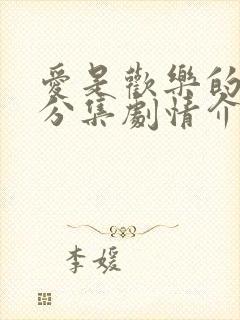 愛是歡樂的
分集劇情介
李媛